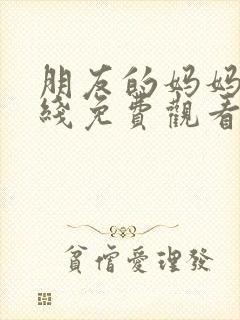 朋友的妈妈
綫免費觀看
貧僧愛理發